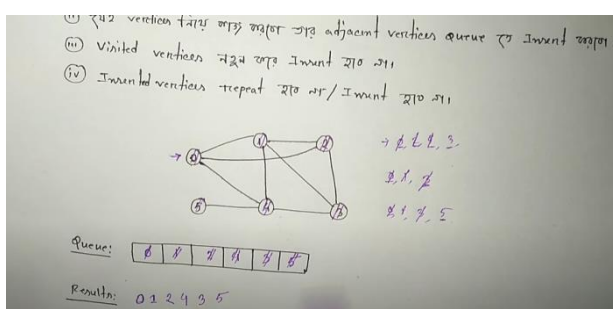 (ii) যেই vertices নিয়ে কাজ করবো তার adjacent vertices queue তে Insert করবো
(iii) Visited vertices নতুন করে Insert হবে না।
(iv) Inserted vertices repeat হবে না / Insert হবে না।
0 1 2
5 4 3
Queue: 0 1 2 4 3 5
Results: 0 1 2 4 3 5